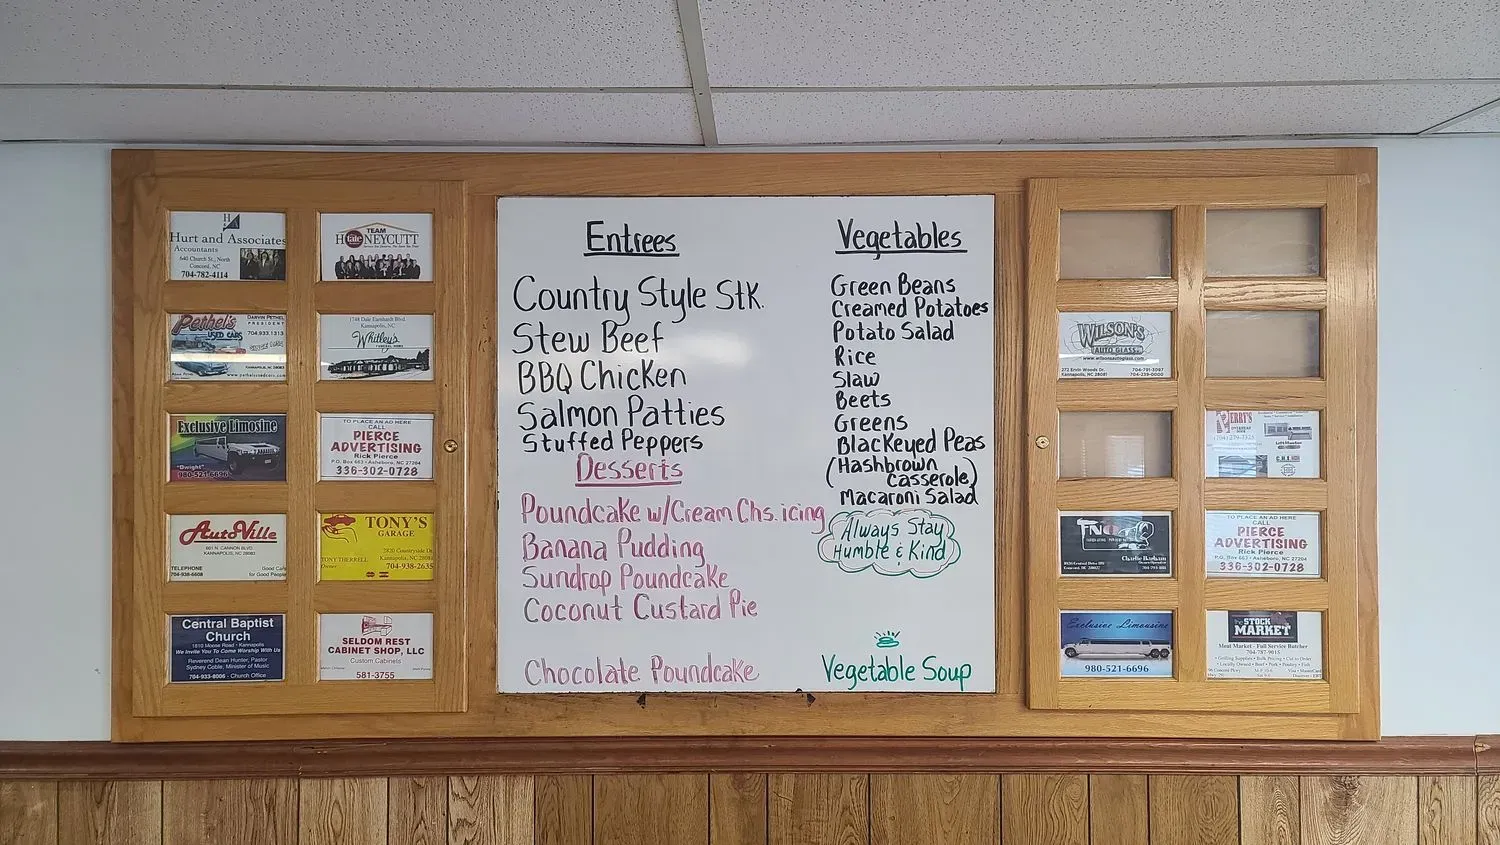 H
Hurt and Associates
Accountants
640 Church St., North
Concord, NC
704-782-4114
TEAM
HONEYCUTT
tate
Pethel's
USED CARS
DARVIN PETHEL
PRESIDENT
704.933.1313
KANNAPOLIS, NC
www.pethelsusedcars.com
1748 Dale Earnhardt Blvd.
Kannapolis, NC
Whitley's
FUNERAL HOME
Exclusive Limosine
"Dwight"
980-521-6696
TO PLACE AN AD HERE
CALL
PIERCE
ADVERTISING
Rick Pierce
P.O. Box 663 • Asheboro, NC 27204
336-302-0728
AutoVille
601 N. CANNON BLVD.
KANNAPOLIS, NC 28083
TELEPHONE
704-938-6608
Good Cars
for Good People
TONY'S
GARAGE
TONY THERRELL
Owner
2820 Countryside Dr.
Kannapolis, NC
704-938-2635
Central Baptist
Church
1810 Moose Road • Kannapolis
We Invite You To Come Worship With Us
Reverend Dean Hunter, Pastor
Sydney Coble, Minister of Music
704-933-6006 - Church Office
SELDOM REST
CABINET SHOP, LLC
Custom Cabinets
581-3755
Entrees
Country Style Stk.
Stew Beef
BBQ Chicken
Salmon Patties
Stuffed Peppers
Desserts
Poundcake w/Cream Chs. icing
Banana Pudding
Sundrop Poundcake
Coconut Custard Pie
Chocolate Poundcake
Vegetables
Green Beans
Creamed Potatoes
Potato Salad
Rice
Slaw
Beets
Greens
Blackeyed Peas
(Hashbrown
Casserole)
Macaroni Salad
Always Stay
Humble & Kind
Vegetable Soup
WILSON'S
AUTO GLASS
www.wilsonsautoglass.com
272 Ervin Woods Dr.
Kannapolis, NC 28081
704-791-3097
704-239-0000
JERRY'S
(704) 279-7325
TNC
Charlie Basham
TO PLACE AN AD HERE
CALL
PIERCE
ADVERTISING
Rick Pierce
P.O. Box 663 • Asheboro, NC 27204
336-302-0728
Exclusive Limousine
980-521-6696
the STOCK
MARKET
Meat Market - Full Service Butcher
704-787-9015
• Grilling Supplies • Bulk Pricing • Cut to Order
• Locally Owned • Beef • Pork • Poultry • Fish